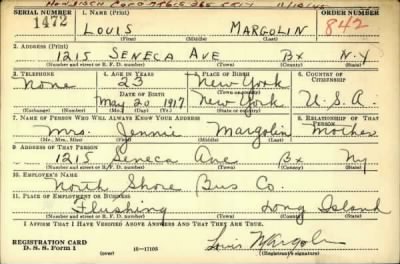 SERIAL NUMBER 1. NAME (Print) ORDER NUMBER
1472 LOUIS MARGOLIN 842
(First) (Middle) (Last)
2. ADDRESS (Print)
1215 SENECA AVE BX N.Y
(Number and street or R. F. D. number) (Town) (County) (State)
3. TELEPHONE 4. AGE IN YEARS 5. PLACE OF BIRTH 6. COUNTRY OF CITIZENSHIP
None 23 New York
DATE OF BIRTH (Town or county)
May 20 1917 New York U.S.A.
(Exchange) (Number) (Mo.) (Day) (Yr.) (State or country)
7. NAME OF PERSON WHO WILL ALWAYS KNOW YOUR ADDRESS 8. RELATIONSHIP OF THAT PERSON
Mrs. Jennie Margolin Mother
(Mr., Mrs., Miss) (First) (Middle) (Last)
9. ADDRESS OF THAT PERSON
1215 Seneca Ave Bx Ny
(Number and street or R. F. D. number) (Town) (County) (State)
10. EMPLOYER'S NAME
North Shore Bus Co.
11. PLACE OF EMPLOYMENT OR BUSINESS
Flushing Long Island
(Number and street or R. F. D. number) (Town) (County) (State)
I AFFIRM THAT I HAVE VERIFIED ABOVE ANSWERS AND THAT THEY ARE TRUE.
REGISTRATION CARD Louis Margolin
D. S. S. Form 1 (over) 16—17105 (Registrant's signature)